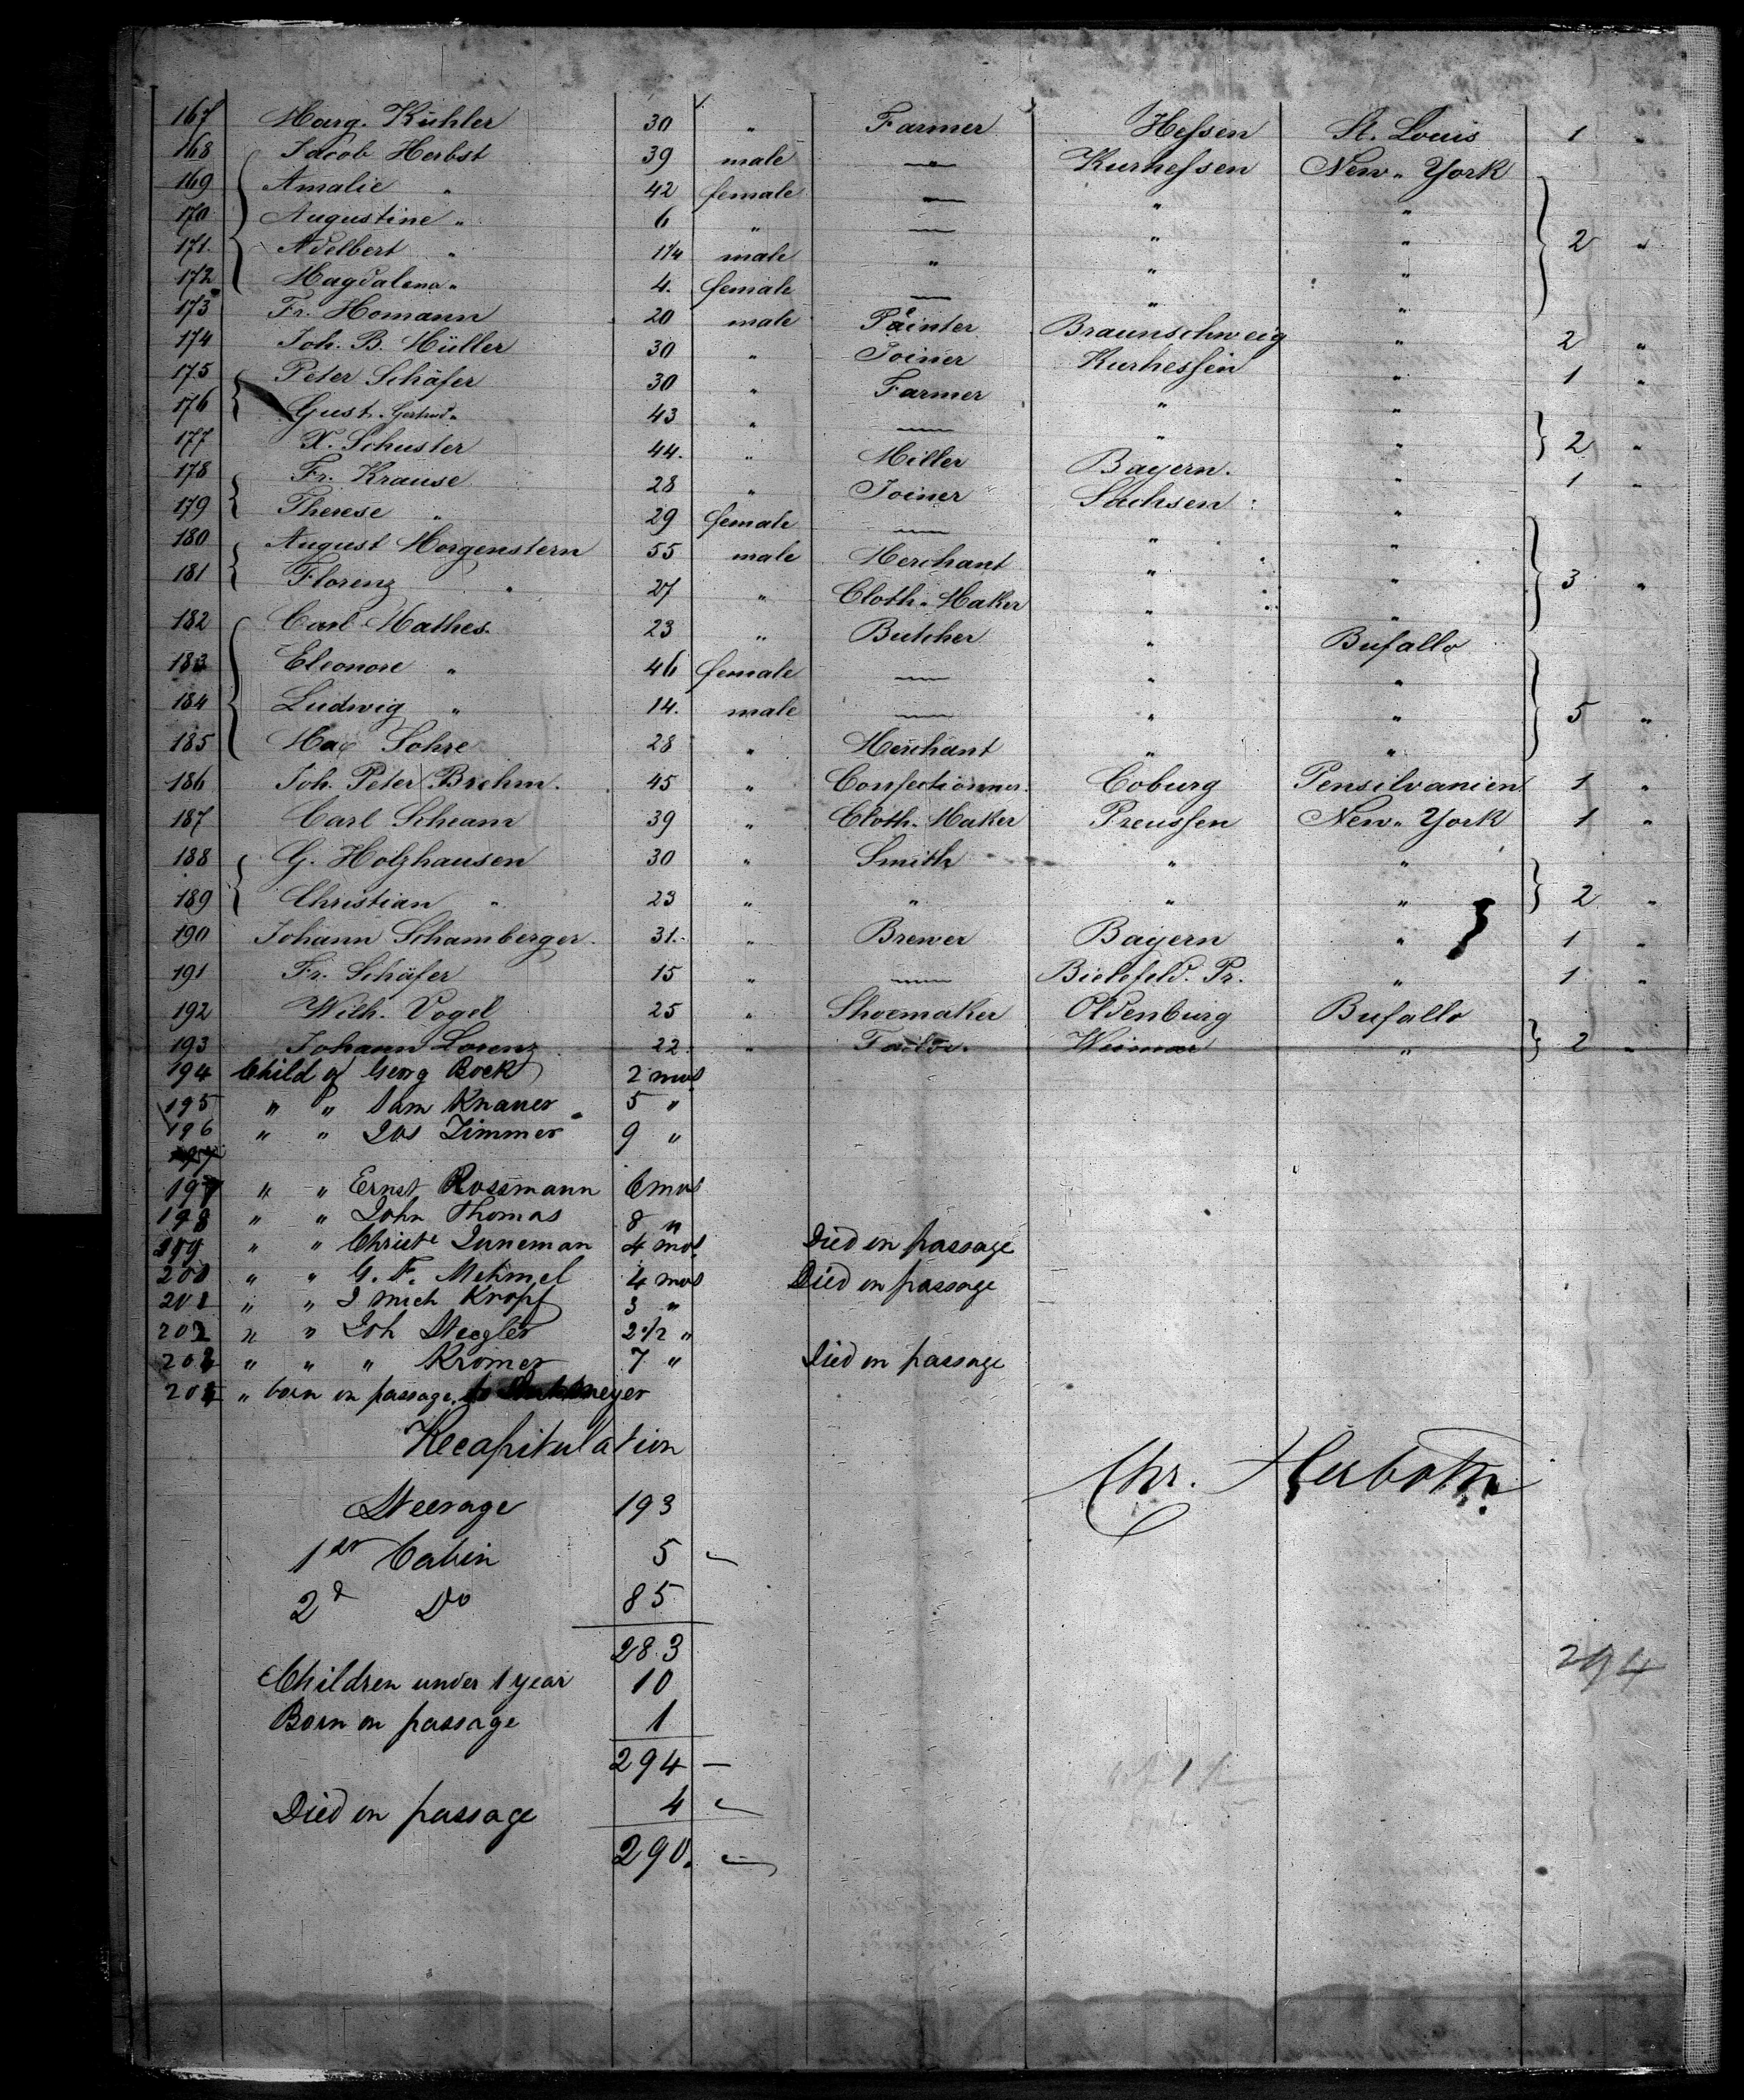 167 Marg. Kühler 30 " Farmer Hessen St. Louis 1 "
168 Jacob Herbst 39 male — Kurhessen New-York
169 Amalie " 42 female — " "
170 Augustine " 6 " — " "
171. Adelbert " 1 1/4 male " " " 2 "
172 Magdalena " 4. female — " "
173 Fr. Homann 20 male Painter Braunschweig " 2 "
174 Joh. B. Müller 30 " Joiner Kurhessen " 1 "
175 Peter Schäfer 30 " Farmer " "
176 Gust. Gertrud " 43 " — " " 2 "
177 X. Schuster 44. " Miller Bayern. " 1 "
178 Fr. Krause 28 " Joiner Sachsen "
179 Therese " 29 female — " "
180 August Morgenstern 55 male Merchant " " 3 "
181 Florenz " 27 " Cloth-Maker " "
182 Carl Mathes. 23 " Butcher " Bufallo
183 Eleonore " 46 female — " "
184 Ludwig " 14. male — " " 5 "
185 Max Sohre 28 " Merchant " "
186 Joh. Peter Brehm. 45 " Confectionner. Coburg Pensilvanien 1 "
187 Carl Schram 39 " Cloth-Maker Preussen New-York 1 "
188 G. Holzhausen 30 " Smith " "
189 Christian " 23 " " " " 2 "
190 Johann Schamberger. 31. " Brewer Bayern " 1 "
191 Fr. Schäfer 15 " — Bielefeld. Pr. " 1 "
192 Wilh. Vogel 25 " Shoemaker Oldenburg Bufallo
193 Johann Lorenz 22. " Tailor. Weimar " 2 "
194 Child of Georg Bock 2 mos
195 " " Sam Knauer 5 "
196 " " Jos Zimmer 9 "
197 " " Ernst Rossmann 6 mos
198 " " John Thomas 8 "
199 " " Christe Juneman 4 mos Died on passage
200 " " G. F. Mehmel 4 mos Died on passage
201 " " J Mich Kropf 3 "
202 " " Joh Stegler 2 1/2 "
203 " " " Kromer 7 " Died on passage
204 " born on passage. to
Recapitulation
Chr. Herboth
Steerage 193
1st Cabin 5
2d Do 85
283
294
Children under 1 year 10
Born on passage 1
294 —
Died on passage 4
290.